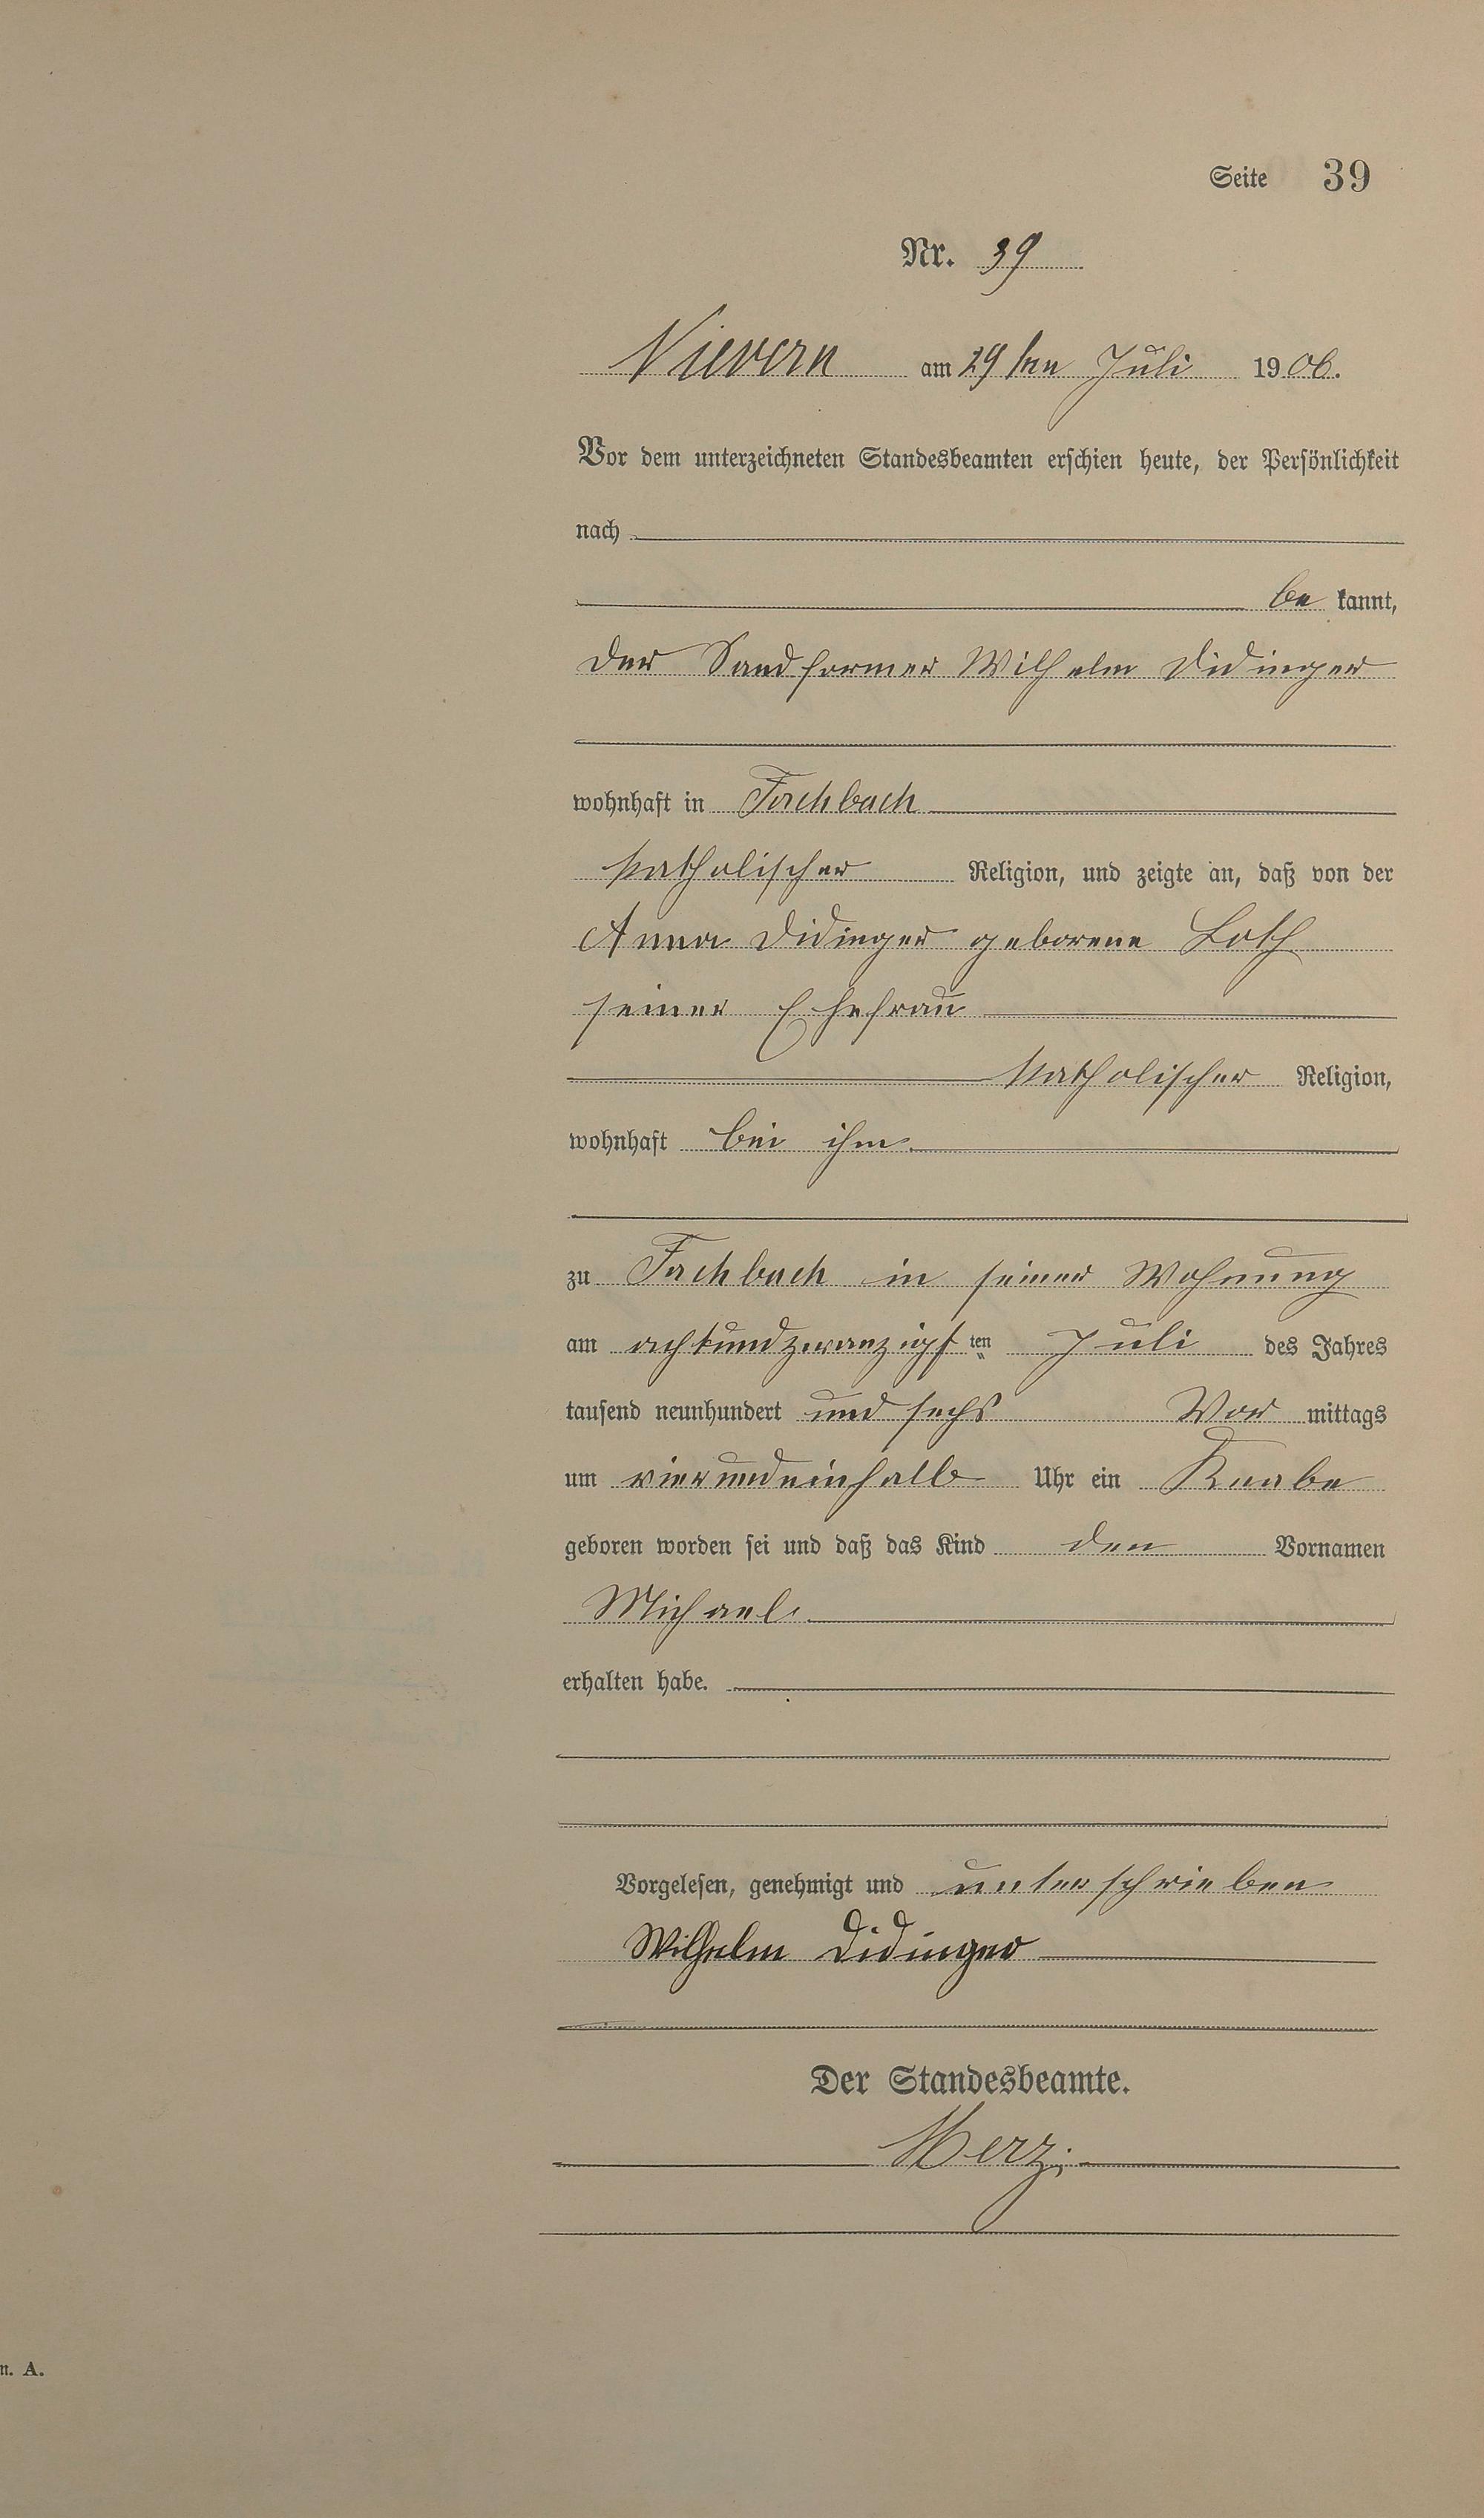 Seite 39
Nr. 39
Nievern am 29 ten Juli 1906.
Vor dem unterzeichneten Standesbeamten erschien heute, der Persönlichkeit
nach
be kannt,
der Sandformer Wilhelm Didinger
wohnhaft in Fachbach
katholischer Religion, und zeigte an, daß von der
Anna Didinger geborene Loth
seiner Ehefrau
katholischer Religion,
wohnhaft bei ihm
zu Fachbach in seiner Wohnung
am achtundzwanzigsten Juli des Jahres
tausend neunhundert und sechs Vor mittags
um vierundeinhalb Uhr ein Knabe
geboren worden sei und daß das Kind den Vornamen
Michael
erhalten habe.
Vorgelesen, genehmigt und unterschrieben
Wilhelm Didinger
Der Standesbeamte.
Merz
n. A.